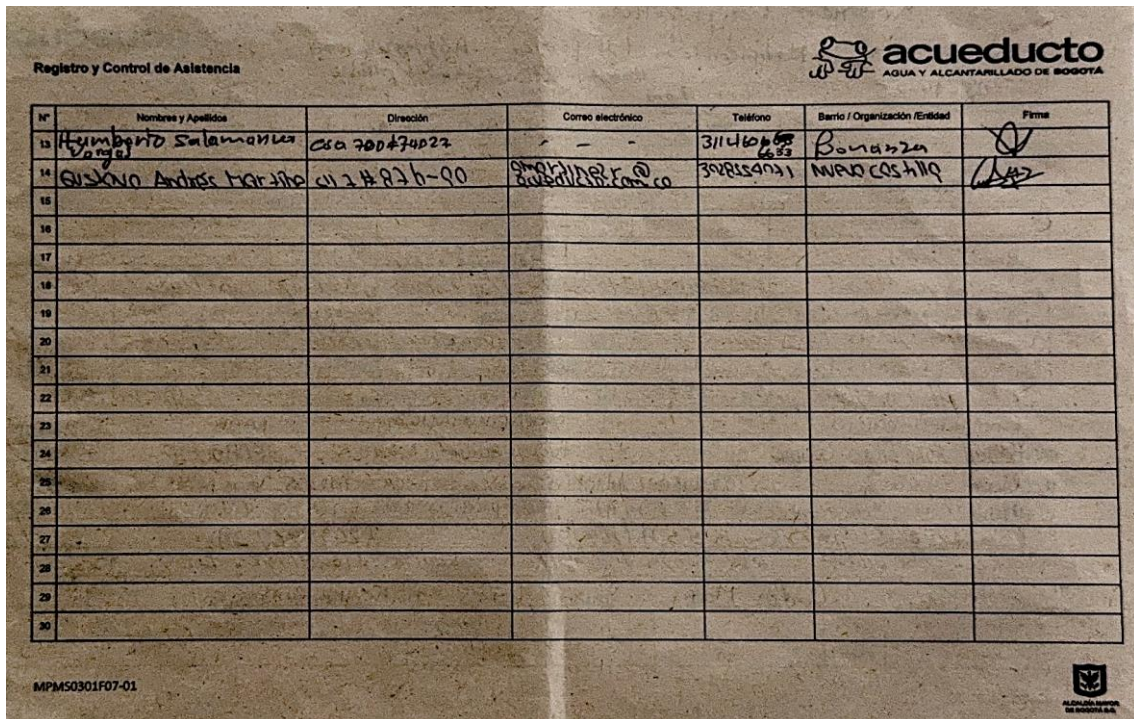 Registro y Control de Asistencia
acueducto
AGUA Y ALCANTARILLADO DE BOGOTÁ
N° Nombres y Apellidos Dirección Correo electrónico Teléfono Barrio / Organización /Entidad Firma
13 Humberto Salamanca - - - Bonanza
14 Gustavo Andrés Martine 3028554071 Nuevo Castilla
15
16
17
18
19
20
21
22
23
24
25
26
27
28
29
30
MPMS0301F07-01
ALCALDÍA MAYOR
DE BOGOTÁ D.C.